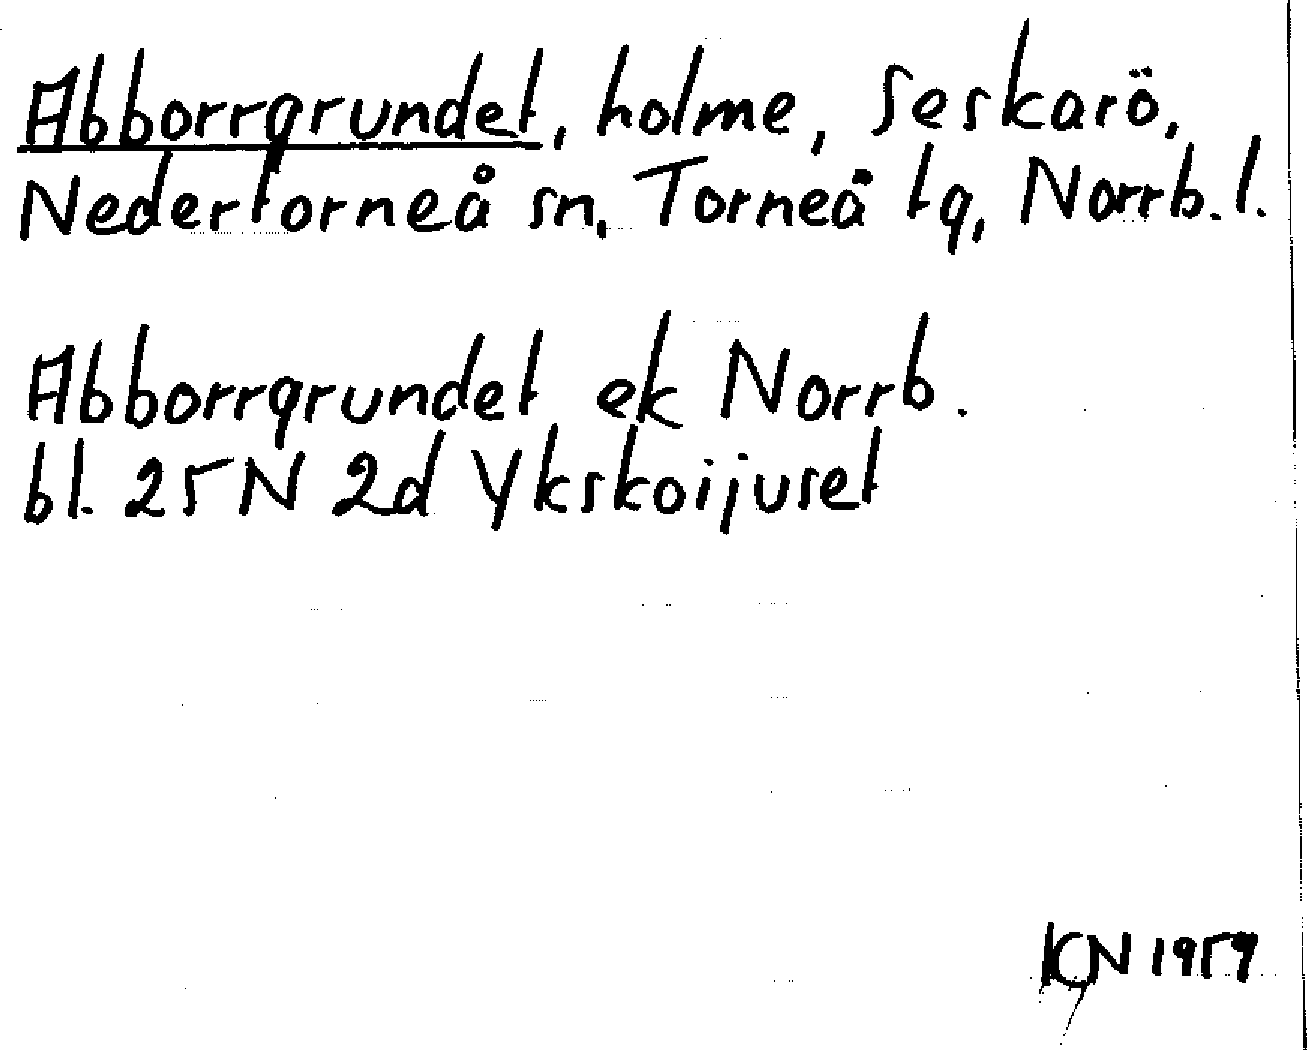 Abborrgrundet, holme, Seskarö,
Nedertorneå sn, Torneå tg, Norrb. l.
Abborrgrundet ek Norrb.
bl. 25 N 2d Ykskoijuset
1959